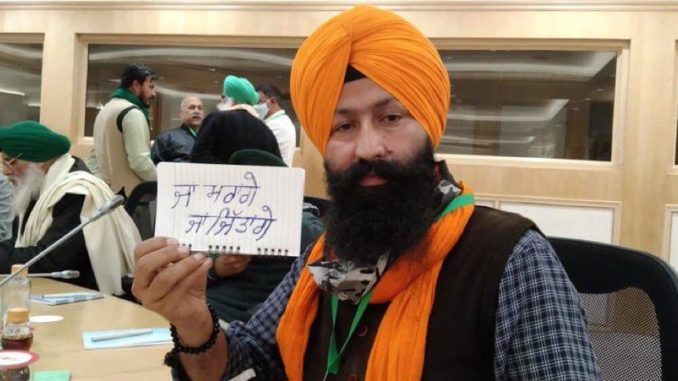 ਜਾ ਮਰਾਗੇ
ਜਾ ਜਿੱਤਾਗੇ